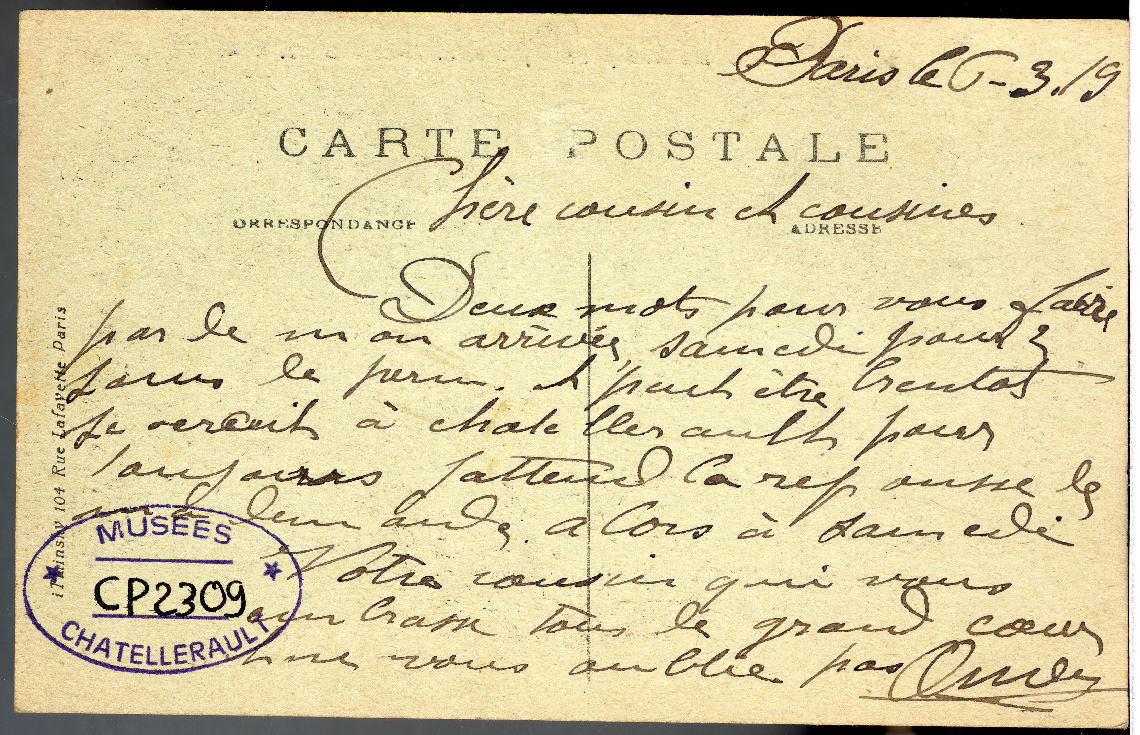 Paris le 6-3.19
CARTE POSTALE
CORRESPONDANCE
ADRESSE
Chère cousin et cousines
Deux mots pour vous faire
par de mon arrivée, samedi pour 2
jours le perm. et peut être bientot
je vercit à chatellerault pour
Toujours jattend la reponsse de
ma demande. alors à samedi
Votre cousin qui vous
ambrasse tous de grand cœur
ne vous oublie pas
104 Rue Lafayette Paris
MUSÉES
CP2309
CHATELLERAULT